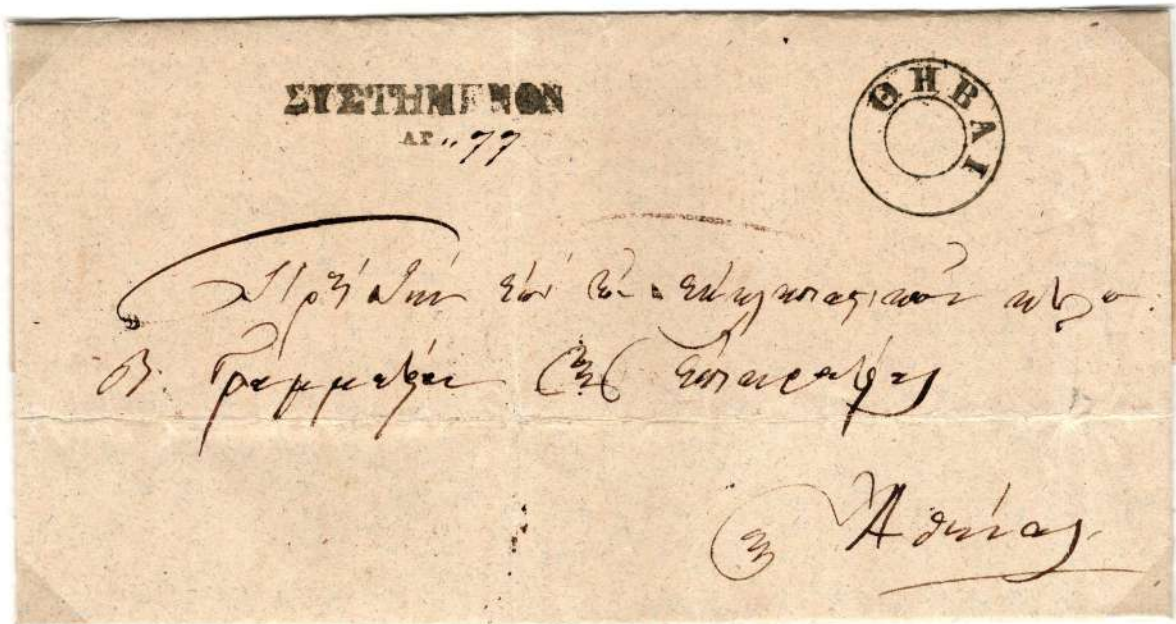 ΣΥΣΤΗΜΕΝΟΝ
ΑΡ. 77
ΘΗΒΑΙ
Πρὸς τὴν ἐπὶ τῶν ἐκκλησιαστικῶν
Β. Γραμματείαν τῆς Ἐπικρατείας
Ἀθήνας